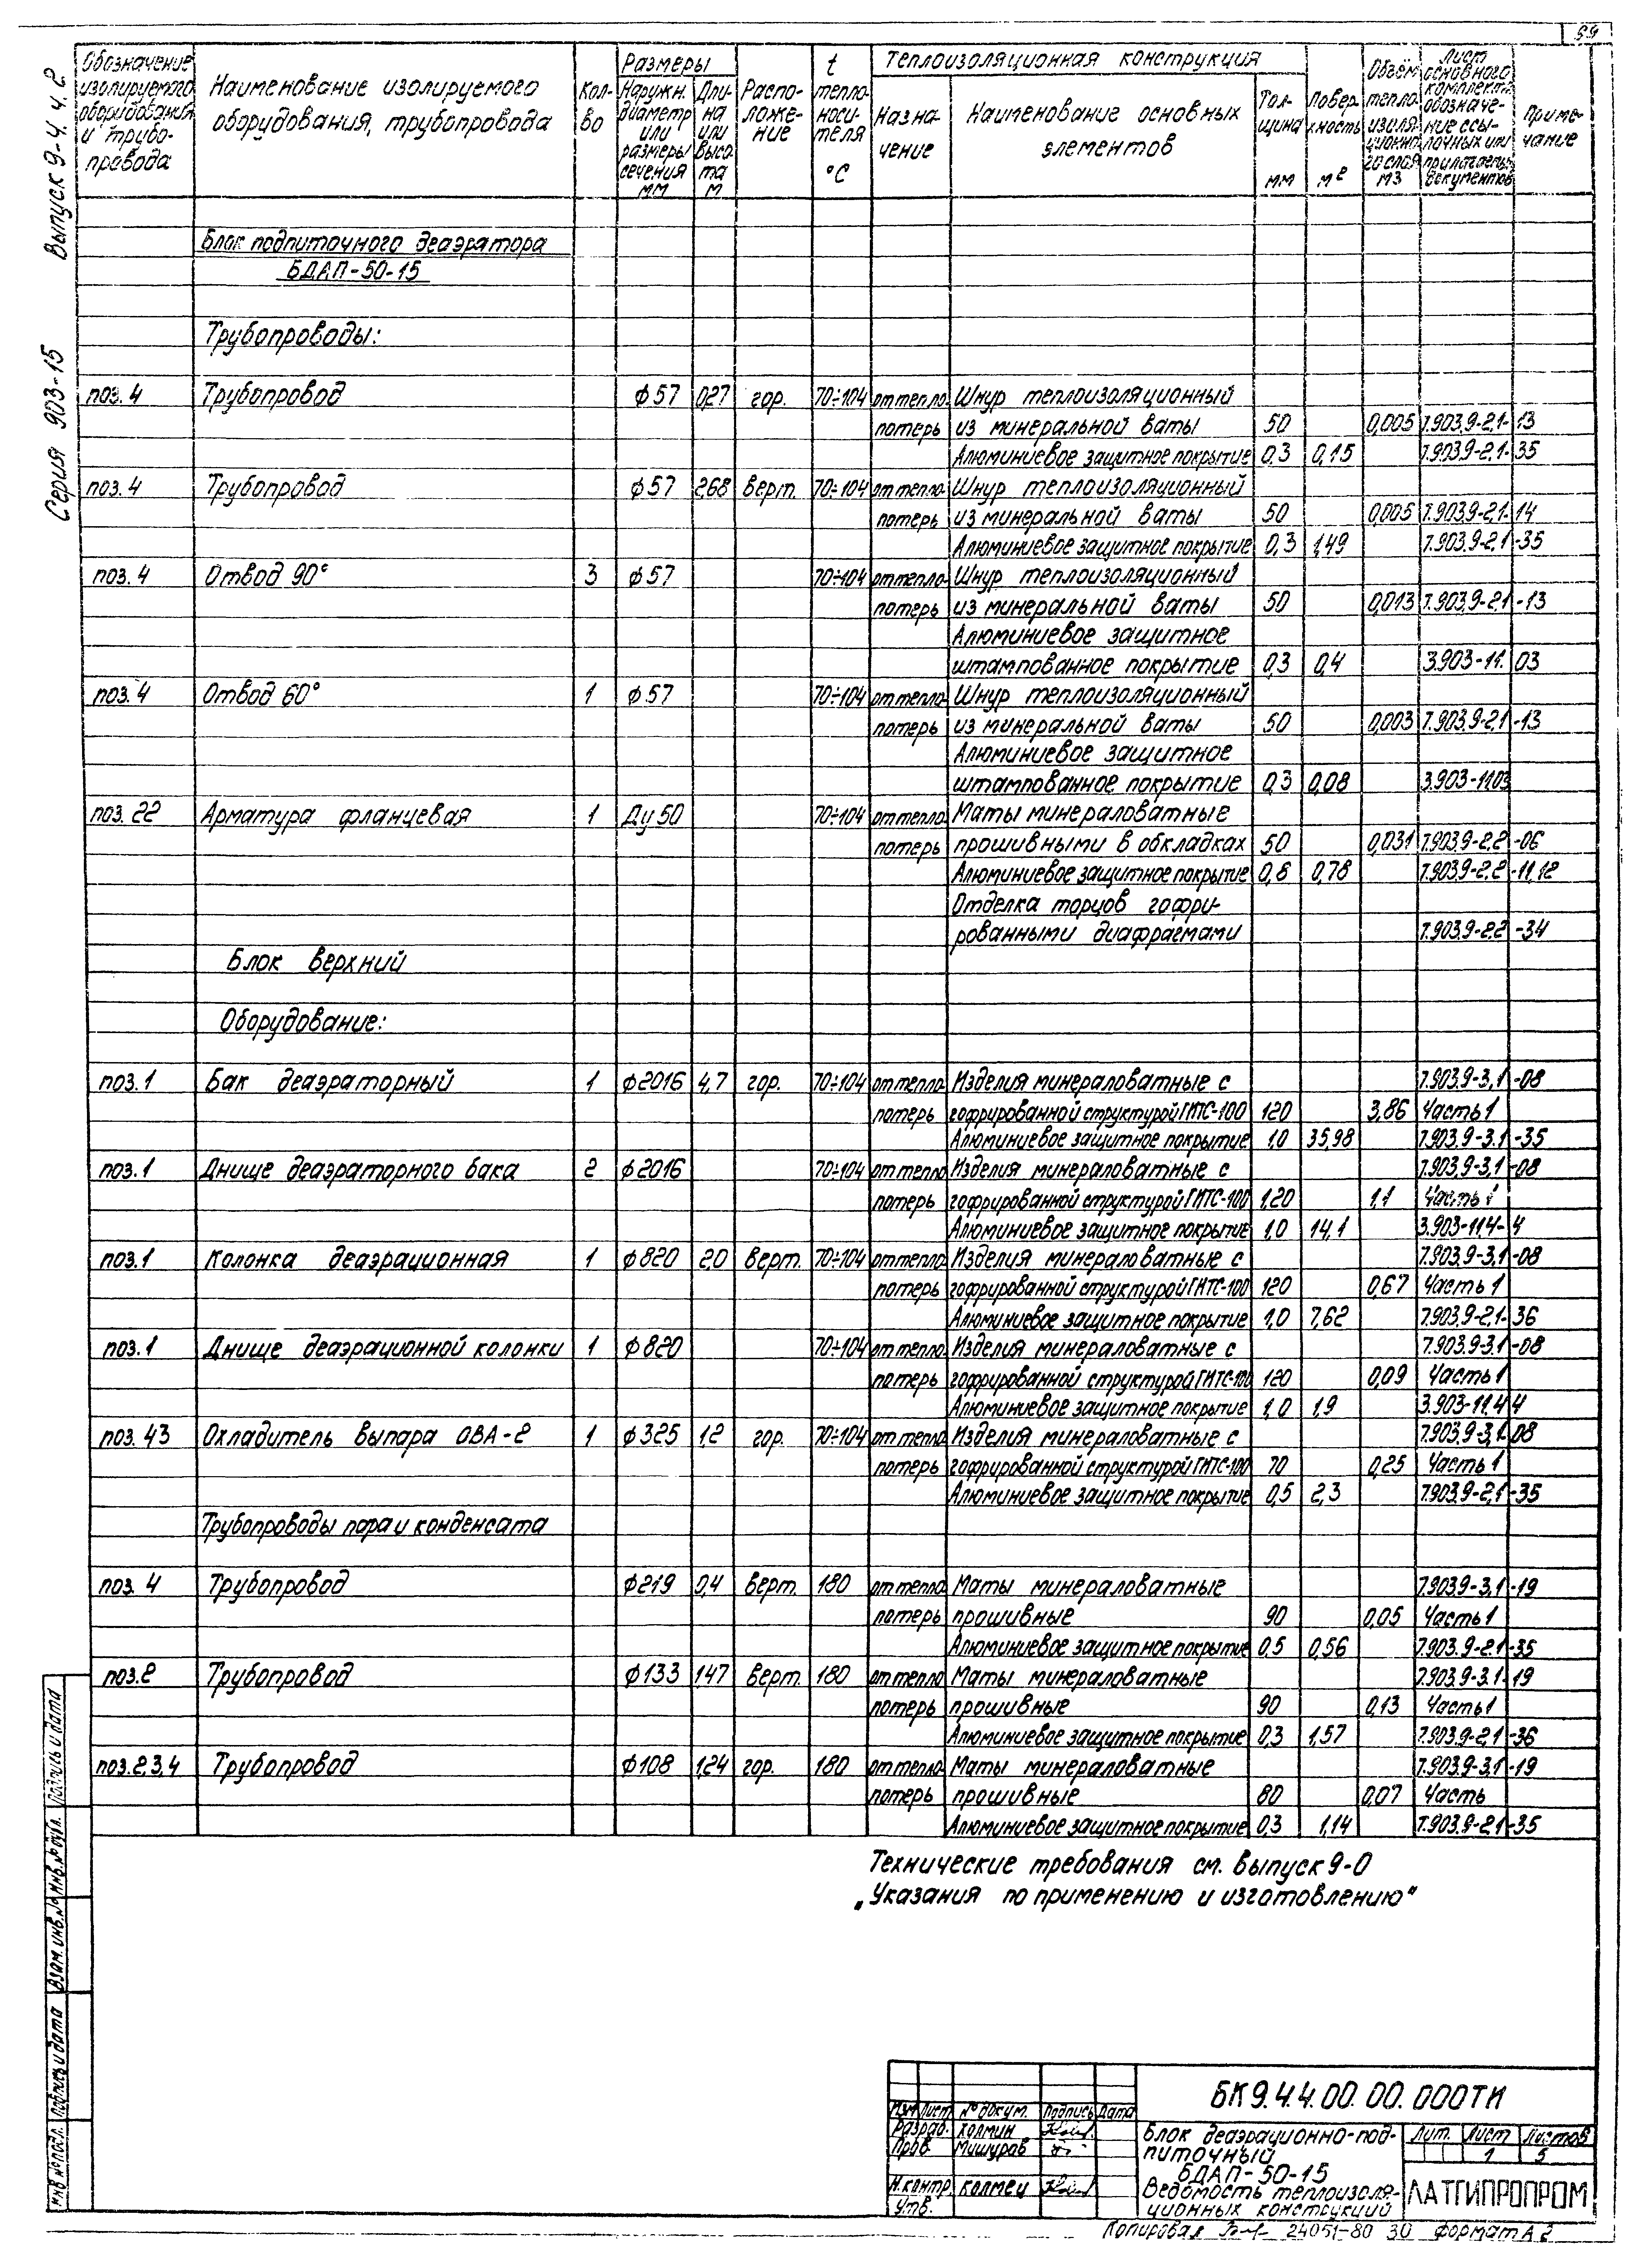 59
Серия 903-15 Выпуск 9-4.4.2
Обозначение изолируемого оборудования и трубопровода
Наименование изолируемого оборудования, трубопровода
Кол-во
Размеры
Наружн. диаметр или размеры сечения мм
Длина или высота м
Расположение
t теплоносителя °С
Теплоизоляционная конструкция
Назначение
Наименование основных элементов
Толщина мм
Поверхность м²
Объём теплоизоляционного слоя м3
Лист основного комплекта, обозначение ссылочных или прилагаемых документов
Примечание
Блок подпиточного деаэратора
БДАП-50-15
Трубопроводы:
поз. 4 Трубопровод ф57 0,27 гор. 70÷104 от тепло- Шнур теплоизоляционный
потерь из минеральной ваты 50 0,005 7.903.9-2.1-13
Алюминиевое защитное покрытие 0,3 0,15 7.903.9-2.1-35
поз. 4 Трубопровод ф57 2,68 верт. 70÷104 от тепло- Шнур теплоизоляционный
потерь из минеральной ваты 50 0,005 7.903.9-2.1-14
Алюминиевое защитное покрытие 0,3 1,49 7.903.9-2.1-35
поз. 4 Отвод 90° 3 ф57 70÷104 от тепло- Шнур теплоизоляционный
потерь из минеральной ваты 50 0,013 7.903.9-2.1-13
Алюминиевое защитное
штампованное покрытие 0,3 0,4 3.903-11.03
поз. 4 Отвод 60° 1 ф57 70÷104 от тепло- Шнур теплоизоляционный
потерь из минеральной ваты 50 0,003 7.903.9-2.1-13
Алюминиевое защитное
штампованное покрытие 0,3 0,08 3.903-11.03
поз. 22 Арматура фланцевая 1 Ду 50 70÷104 от тепло- Маты минераловатные
потерь прошивными в обкладках 50 0,031 7.903.9-2.2-06
Алюминиевое защитное покрытие 0,8 0,78 7.903.9-2.2-11,12
Отделка торцов гофри-
рованными диафрагмами 7.903.9-2.2-34
Блок верхний
Оборудование:
поз.1 Бак деаэраторный 1 ф2016 4,7 гор. 70÷104 от тепло- Изделия минераловатные с 7.903.9-3.1-08
потерь гофрированной структурой ГИТС-100 120 3,86 Часть 1
Алюминиевое защитное покрытие 1,0 35,98 7.903.9-3.1-35
поз.1 Днище деаэраторного бака 2 ф2016 70÷104 от тепло- Изделия минераловатные с 7.903.9-3.1-08
потерь гофрированной структурой ГИТС-100 120 1,1 Часть 1
Алюминиевое защитное покрытие 1,0 14,1 3.903-11.4-4
поз.1 Колонка деаэрационная 1 ф820 2,0 верт. 70÷104 от тепло- Изделия минераловатные с 7.903.9-3.1-08
потерь гофрированной структурой ГИТС-100 120 0,67 Часть 1
Алюминиевое защитное покрытие 1,0 7,62 7.903.9-2.1-36
поз.1 Днище деаэрационной колонки 1 ф820 70÷104 от тепло- Изделия минераловатные с 7.903.9-3.1-08
потерь гофрированной структурой ГИТС-100 120 0,09 Часть 1
Алюминиевое защитное покрытие 1,0 1,9 3.903-11.4 4
поз. 43 Охладитель выпара ОВА-2 1 ф325 1,2 гор. 70÷104 от тепло- Изделия минераловатные с 7.903.9-3.1-08
потерь гофрированной структурой ГИТС-100 70 0,25 Часть 1
Алюминиевое защитное покрытие 0,5 2,3 7.903.9-2.1-35
Трубопроводы пара и конденсата
поз. 4 Трубопровод ф219 0,4 верт. 180 от тепло- Маты минераловатные 7.903.9-3.1-19
потерь прошивные 90 0,05 Часть 1
Алюминиевое защитное покрытие 0,5 0,56 7.903.9-2.1-35
поз.2 Трубопровод ф133 1,47 верт. 180 от тепло Маты минераловатные 7.903.9-3.1-19
потерь прошивные 90 0,13 Часть 1
Алюминиевое защитное покрытие 0,3 1,57 7.903.9-2.1-36
поз.2,3,4 Трубопровод ф108 1,24 гор. 180 от тепло- Маты минераловатные 7.903.9-3.1-19
потерь прошивные 80 0,07 Часть
Алюминиевое защитное покрытие 0,3 1,14 7.903.9-2.1-35
Технические требования см. выпуск 9-0
„Указания по применению и изготовлению"
Инв.№ подл. Подпись и дата Взам. инв.№ Инв.№ дубл. Подпись и дата
БК9.4.4.00.00.000ТИ
Изм Лист № докум. Подпись Дата
Разраб. Колмин
Пров. Мишуров
Н.контр. Колмец
Утв.
Блок деаэрационно-под-
питочный
БДАП-50-15
Ведомость теплоизоля-
ционных конструкций
Лит. Лист Листов
1 5
ЛАТГИПРОПРОМ
Копировал 24051-80 30 Формат А2